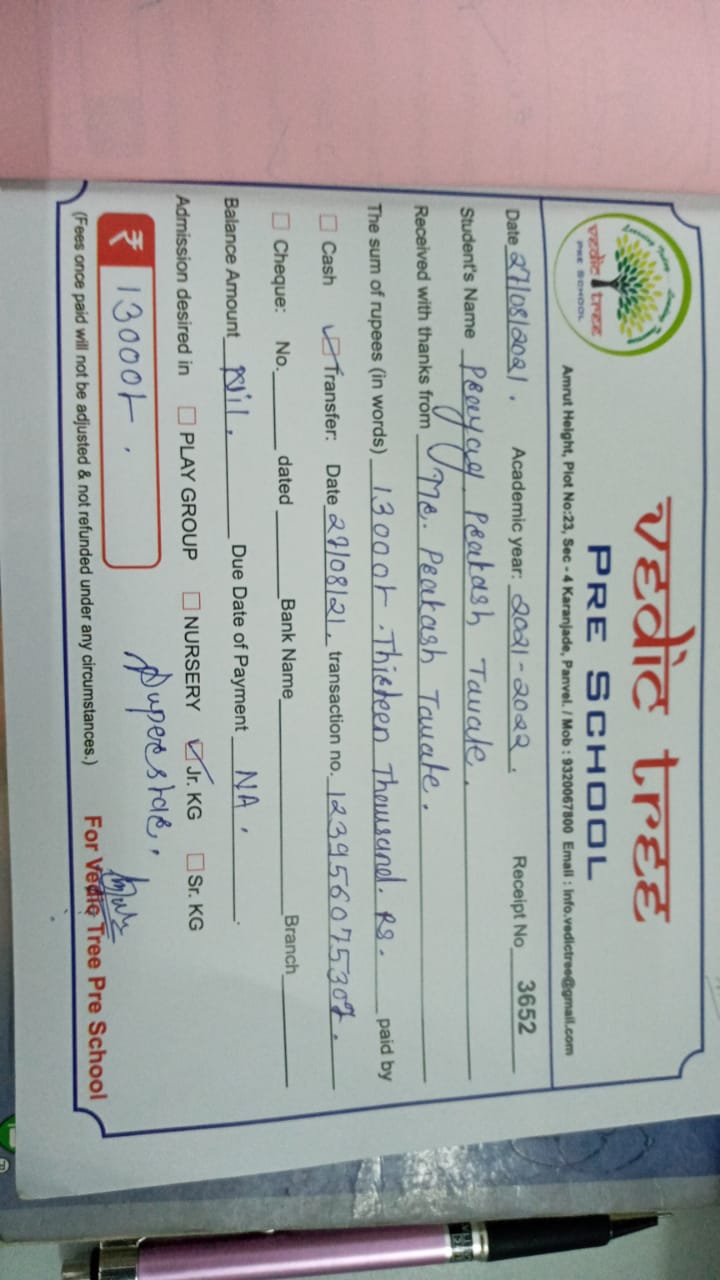 vedic tree
PRE SCHOOL
vedic tree
PRE SCHOOL
Amrut Height, Plot No:23, Sec - 4 Karanjade, Panvel. / Mob : 9320067800 Email : info.vedictree@gmail.com
Date 27/08/2021. Academic year: 2021-2022. Receipt No 3652
Student's Name Prayag Prakash Tavate.
Received with thanks from Mr. Prakash Tavate.
The sum of rupees (in words) 13000/-. Thirteen Thousand. Rs. paid by
Cash Transfer: Date 27/08/21. transaction no. 123956075307.
Cheque: No. dated Bank Name Branch
Balance Amount Nil. Due Date of Payment NA.
Admission desired in PLAY GROUP NURSERY Jr. KG Sr. KG
₹ 13000/-. Superstar.
(Fees once paid will not be adjusted & not refunded under any circumstances.) For Vedic Tree Pre School